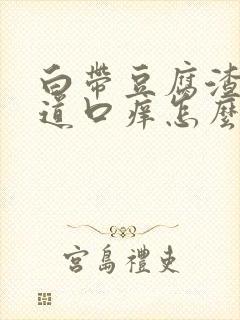 白帶豆腐渣
道口痒怎麼
宮島禮吏